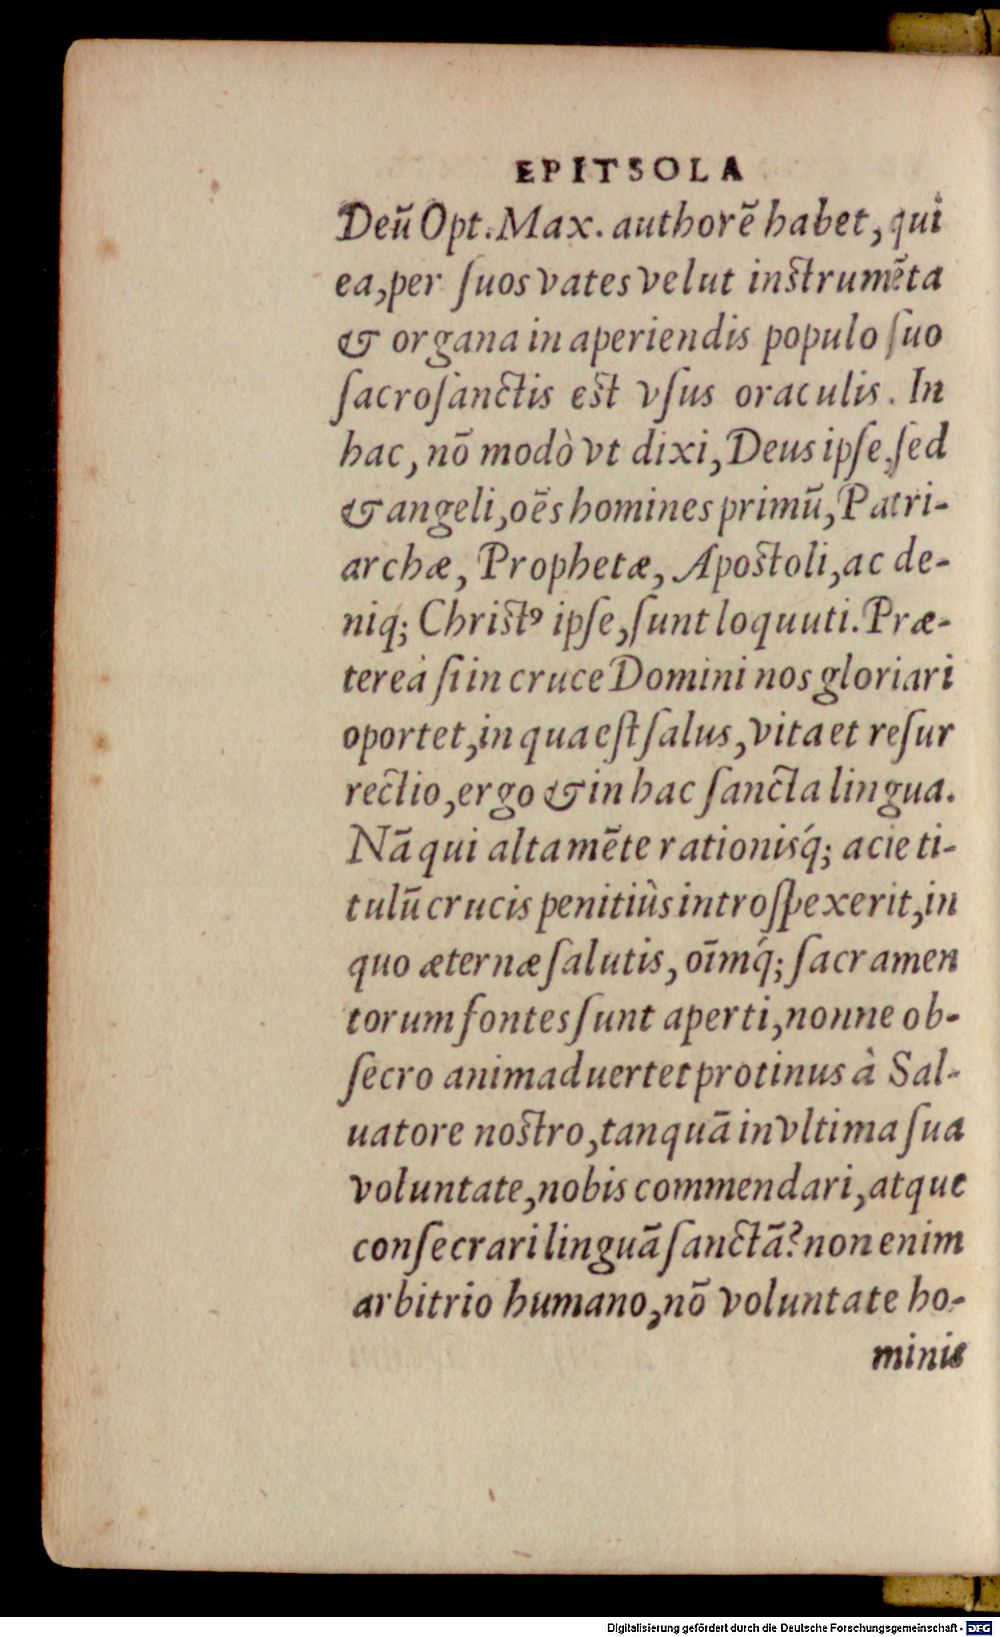 EPITSOLA
Deū Opt. Max. authorē habet, qui
ea, per ſuos vates velut inſtrumēta
& organa in aperiendis populo ſuo
ſacroſanctis eſt vſus oraculis. In
hac, nō modò vt dixi, Deus ipſe, ſed
& angeli, oēs homines primū, Patri-
archæ, Prophetæ, Apoſtoli, ac de-
niq; Chriſtꝰ ipſe, ſunt loquuti. Præ-
tereà ſi in cruce Domini nos gloriari
oportet, in qua eſt ſalus, vita et reſur
rectio, ergo & in hac ſancta lingua.
Nā qui alta mēte rationiſq́; acie ti-
tulū crucis penitiùs introſpexerit, in
quo æternæ ſalutis, oīmq́; ſacramen
torum fontes ſunt aperti, nonne ob-
ſecro animaduertet protinus à Sal-
uatore noſtro, tanquā in vltima ſua
voluntate, nobis commendari, atque
conſecrari linguā ſanctā? non enim
arbitrio humano, nō voluntate ho-
minis
Digitalisierung gefördert durch die Deutsche Forschungsgemeinschaft - DFG